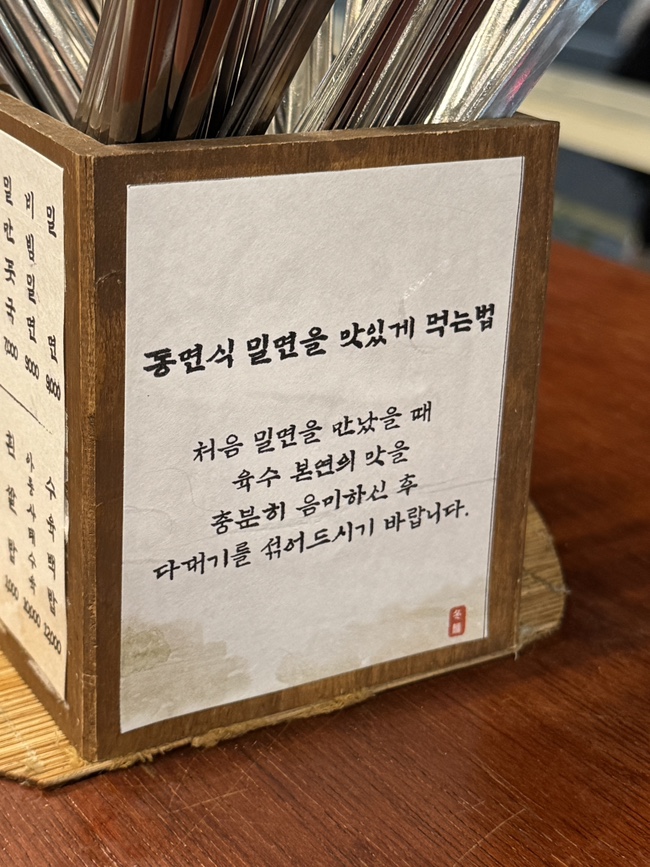 동면식 밀면을 맛있게 먹는법
처음 밀면을 만났을 때
육수 본연의 맛을
충분히 음미하신 후
다대기를 섞어드시기 바랍니다.
冬麵
밀면 9,000
비빔밀면 9,000
밀만풋국 7,000
수육백밥 12,000
흰쌀밥 1,000